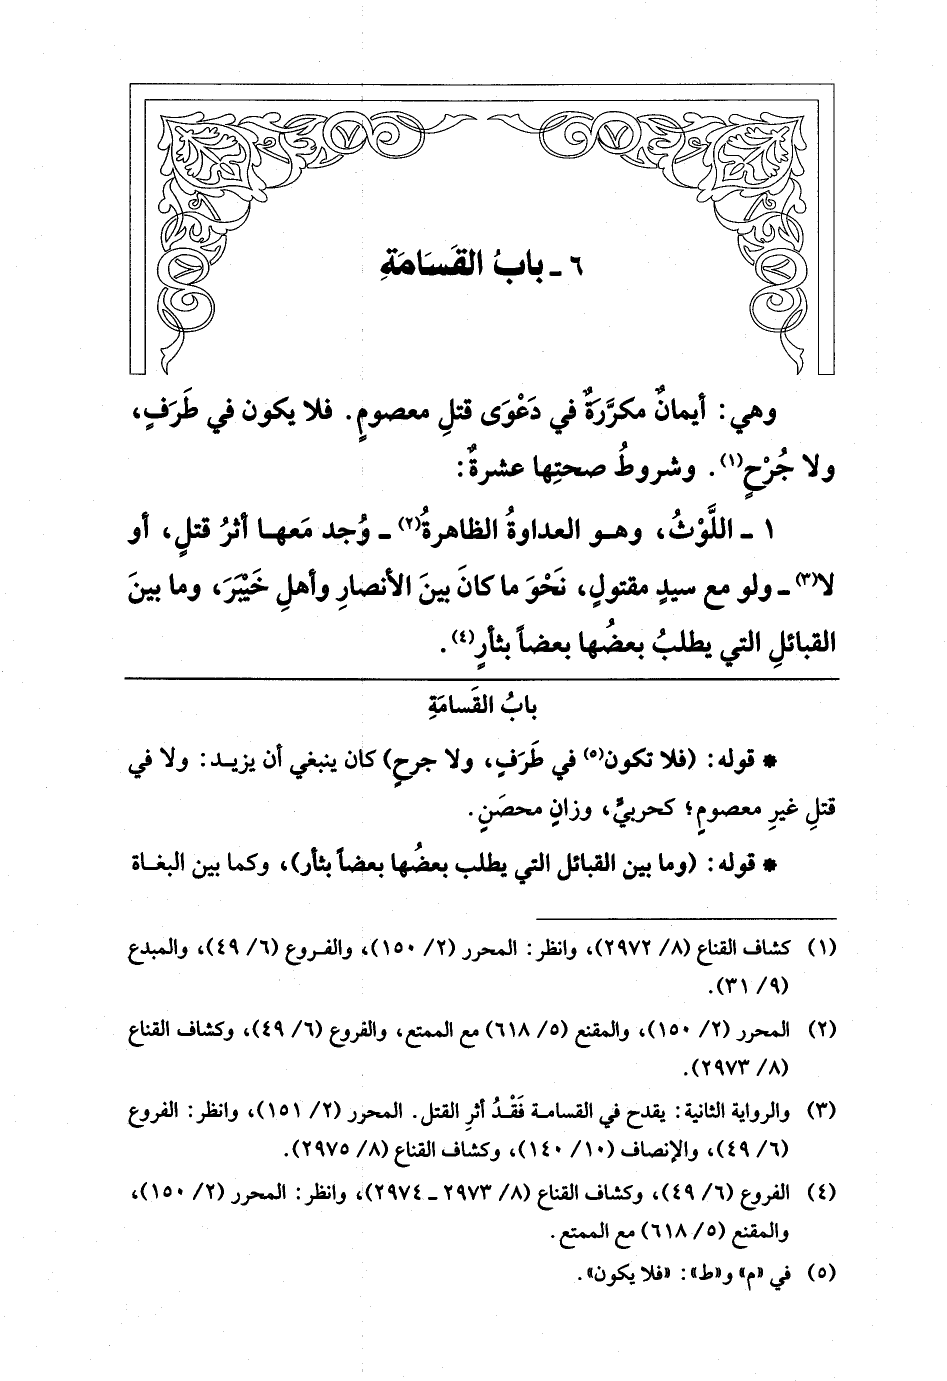 ٦ ـ بابُ القَسَامَةِ
وهي: أيمانٌ مكرَّرَةٌ في دَعْوَى قتلِ معصومٍ. فلا يكون في طَرَفٍ،
ولا جُرْحٍ(١). وشروطُ صحتِها عشرةٌ:
١ ـ اللَّوْثُ، وهو العداوةُ الظاهرةُ(٢) ـ وُجد مَعها أثرُ قتلٍ، أو
لا(٣) ـ ولو مع سيدٍ مقتولٍ، نَحْوَ ما كانَ بينَ الأنصارِ وأهلِ خَيْبَرَ، وما بينَ
القبائلِ التي يطلبُ بعضُها بعضاً بثأرٍ(٤).
بابُ القَسامَةِ
* قوله: (فلا تكون(٥) في طَرَفٍ، ولا جرحٍ) كان ينبغي أن يزيد: ولا في
قتلِ غيرِ معصومٍ؛ كحربيٍّ، وزانٍ محصَنٍ.
* قوله: (وما بين القبائل التي يطلب بعضُها بعضاً بثأر)، وكما بين البغاة
(١) كشاف القناع (٨/ ٢٩٧٢)، وانظر: المحرر (٢/ ١٥٠)، والفروع (٦/ ٤٩)، والمبدع
(٩/ ٣١).
(٢) المحرر (٢/ ١٥٠)، والمقنع (٥/ ٦١٨) مع الممتع، والفروع (٦/ ٤٩)، وكشاف القناع
(٨/ ٢٩٧٣).
(٣) والرواية الثانية: يقدح في القسامة فَقْدُ أثرِ القتل. المحرر (٢/ ١٥١)، وانظر: الفروع
(٦/ ٤٩)، والإنصاف (١٠/ ١٤٠)، وكشاف القناع (٨/ ٢٩٧٥).
(٤) الفروع (٦/ ٤٩)، وكشاف القناع (٨/ ٢٩٧٣ ـ ٢٩٧٤)، وانظر: المحرر (٢/ ١٥٠)،
والمقنع (٥/ ٦١٨) مع الممتع.
(٥) في «م» و«ط»: «فلا يكون».